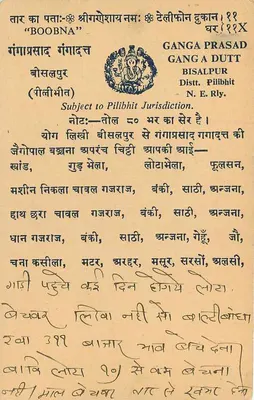 तार का पता:- ❀ श्रीगणेशाय नम: ❀ टेलीफोन दुकान: ११
"BOOBNA" घर: ११X
गंगाप्रसाद गंगादत्त
बीसलपुर
(पीलीभीत)
GANGA PRASAD
GANGA DUTT
BISALPUR
Distt. Pilibhit
N. E. Rly.
Subject to Pilibhit Jurisdiction.
नोट:—तोल ८० भर का सेर है।
योग लिखी बीसलपुर से गंगाप्रसाद गंगादत्त की
जैगोपाल बञ्चना अपरंच चिट्ठी आपकी आई—
खांड, गुड़ मेला, लोटामेला, फूलसन,
मशीन निकला चावल गजराज, बंकी, साठी, अन्जना,
हाथ छरा चावल गजराज, बंकी, साठी, अन्जना,
धान गजराज, बंकी, साठी, अन्जना, गेहूँ, जौ,
चना कसीला, मटर, अरहर, मसूर, सरसों, अलसी,
गाडी पहुचे कई दिन होगये लोटा
बेचकर लिखा नही सो बाल्टी बाधा
रवा ३११ बाजार भाव बेच देना
बाकि लोटा १०) से कम बेचना
नही। माल बेचकर